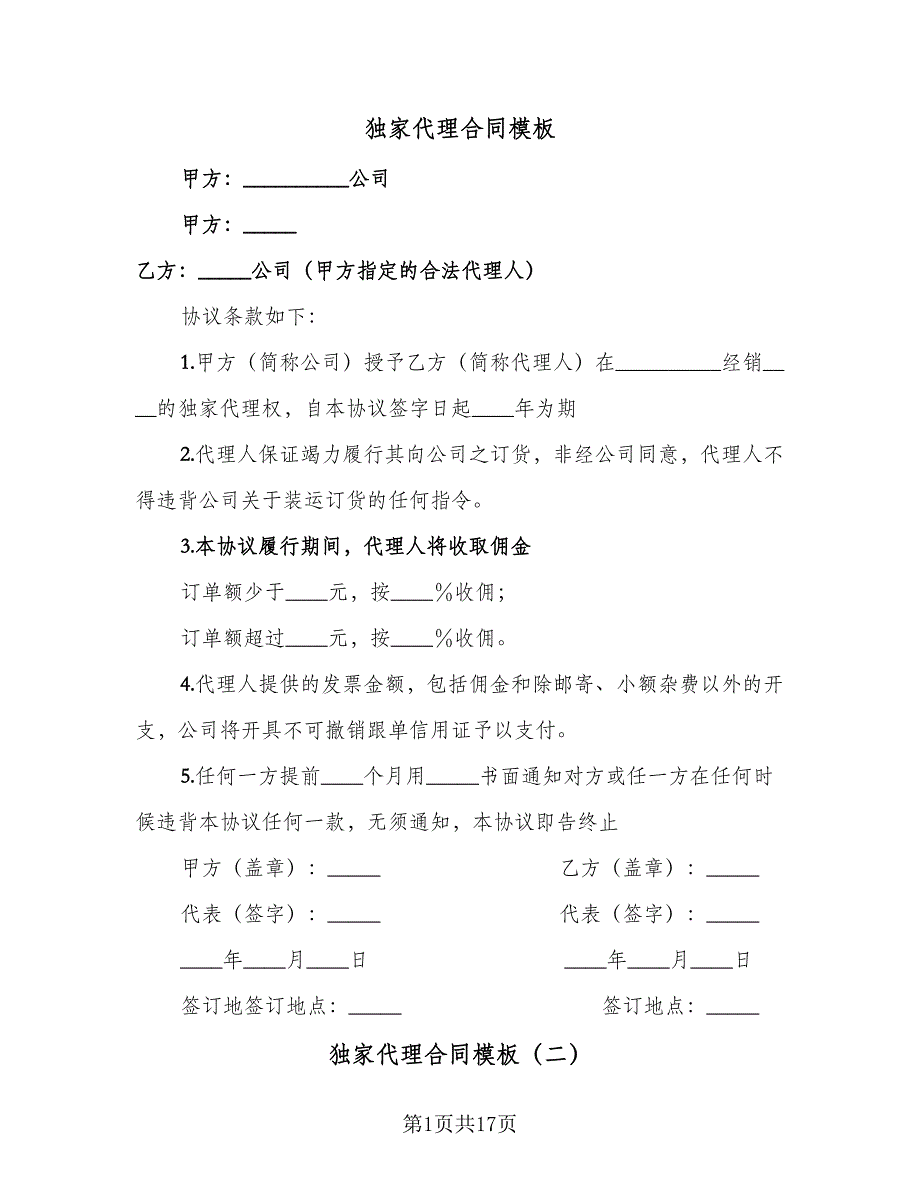 独家代理合同模板
甲方：__________公司
甲方：_____
乙方：_____公司（甲方指定的合法代理人）
协议条款如下：
1.甲方（简称公司）授予乙方（简称代理人）在__________经销__
__的独家代理权，自本协议签字日起____年为期
2.代理人保证竭力履行其向公司之订货，非经公司同意，代理人不
得违背公司关于装运订货的任何指令。
3.本协议履行期间，代理人将收取佣金
订单额少于____元，按____%收佣；
订单额超过____元，按____%收佣。
4.代理人提供的发票金额，包括佣金和除邮寄、小额杂费以外的开
支，公司将开具不可撤销跟单信用证予以支付。
5.任何一方提前____个月用_____书面通知对方或任一方在任何时
候违背本协议任何一款，无须通知，本协议即告终止
甲方（盖章）：_____ 乙方（盖章）：_____
代表（签字）：_____ 代表（签字）：_____
____年____月____日 ____年____月____日
签订地签订地点：_____ 签订地点：_____
独家代理合同模板（二）
第1页共17页